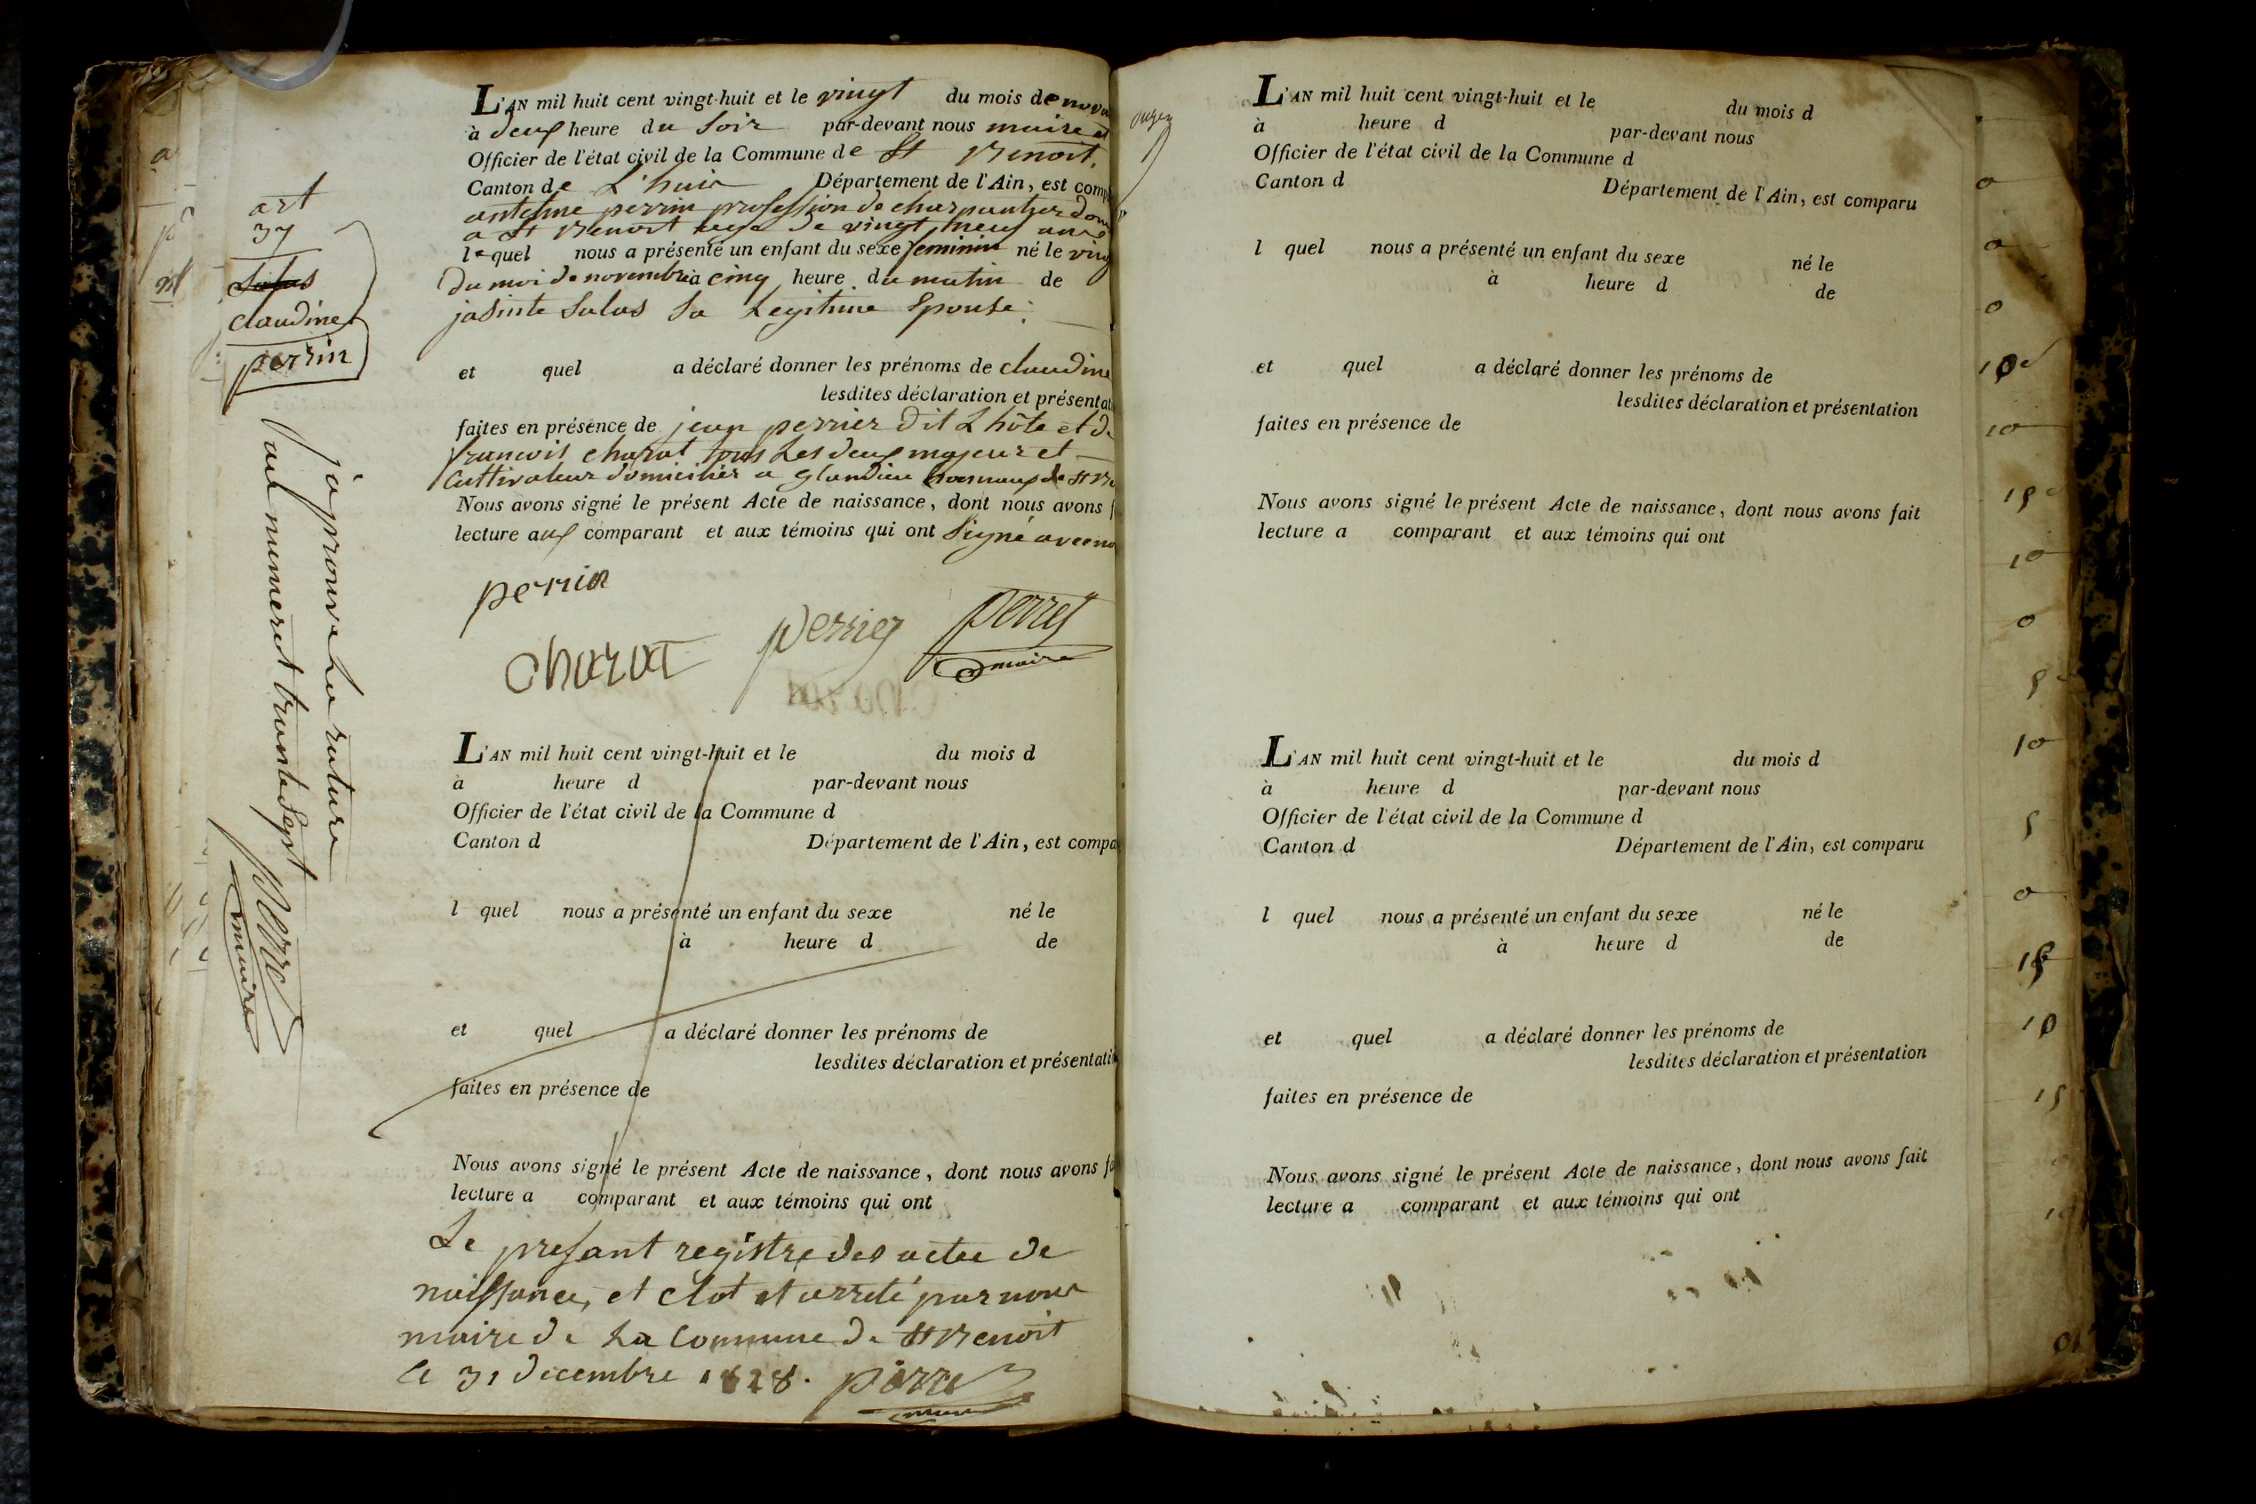 art
37
Salas
claudine
perrin
j'aprouve La rature
au numerot trante Sept
Perret
maire
L'AN mil huit cent vingt-huit et le vingt du mois de nov
à deux heure du Soir par-devant nous maire et
Officier de l'état civil de la Commune de St Benoit.
Canton de L'huis Département de l'Ain, est comp
antoine perrin profession de charpantier dom
a St Benoit age de vingt neuf ans
lequel nous a présenté un enfant du sexe feminin né le ving
du moi de novembre à cinq heure du matin de
jasinte Salas Sa Legitime Epouse.
et quel a déclaré donner les prénoms de claudine
lesdites déclaration et présentat
faites en présence de jean perrier dit L'hôte et de
francois charat tous Les deux majeur et
Cultivateur domiciliés a glandieu de St Be
Nous avons signé le présent Acte de naissance, dont nous avons f
lecture aux comparant et aux témoins qui ont Signé avec no
perrin
charat perrier perret
maire
L'AN mil huit cent vingt-huit et le du mois d
à heure d par-devant nous
Officier de l'état civil de la Commune d
Canton d Département de l'Ain, est compa
l quel nous a présenté un enfant du sexe né le
à heure d de
et quel a déclaré donner les prénoms de
lesdites déclaration et présentati
faites en présence de
Nous avons signé le présent Acte de naissance, dont nous avons fa
lecture a comparant et aux témoins qui ont
Le presant registre des actee de
naissance, et clot et arreté par nous
maire de La Commune de St Benoit
le 31 decembre 1828. perret
maire
L'AN mil huit cent vingt-huit et le du mois d
à heure d par-devant nous
Officier de l'état civil de la Commune d
Canton d Département de l'Ain, est comparu
l quel nous a présenté un enfant du sexe né le
à heure d de
et quel a déclaré donner les prénoms de
lesdites déclaration et présentation
faites en présence de
Nous avons signé le présent Acte de naissance, dont nous avons fait
lecture a comparant et aux témoins qui ont
L'AN mil huit cent vingt-huit et le du mois d
à heure d par-devant nous
Officier de l'état civil de la Commune d
Canton d Département de l'Ain, est comparu
l quel nous a présenté un enfant du sexe né le
à heure d de
et quel a déclaré donner les prénoms de
lesdites déclaration et présentation
faites en présence de
Nous avons signé le présent Acte de naissance, dont nous avons fait
lecture a comparant et aux témoins qui ont